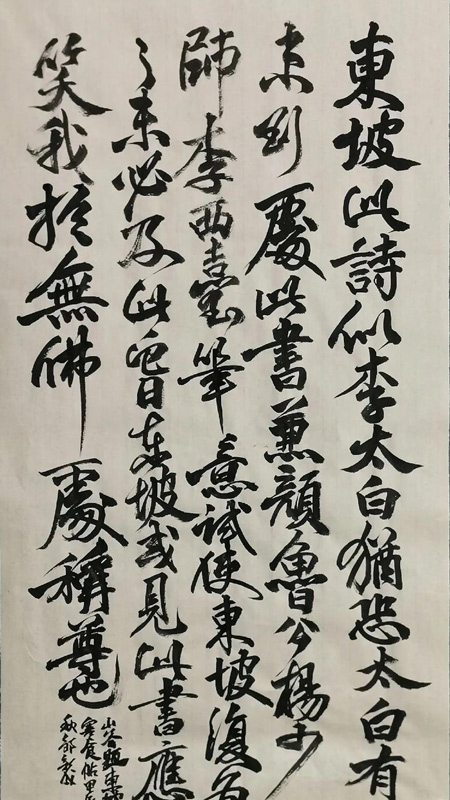 東坡此詩似李太白猶恐太白有
未到處此書兼顏魯公楊少
師李西臺筆意試使東坡復為
之未必及此它日東坡或見此書應
笑我於無佛處稱尊也
山谷題東坡
寒食帖